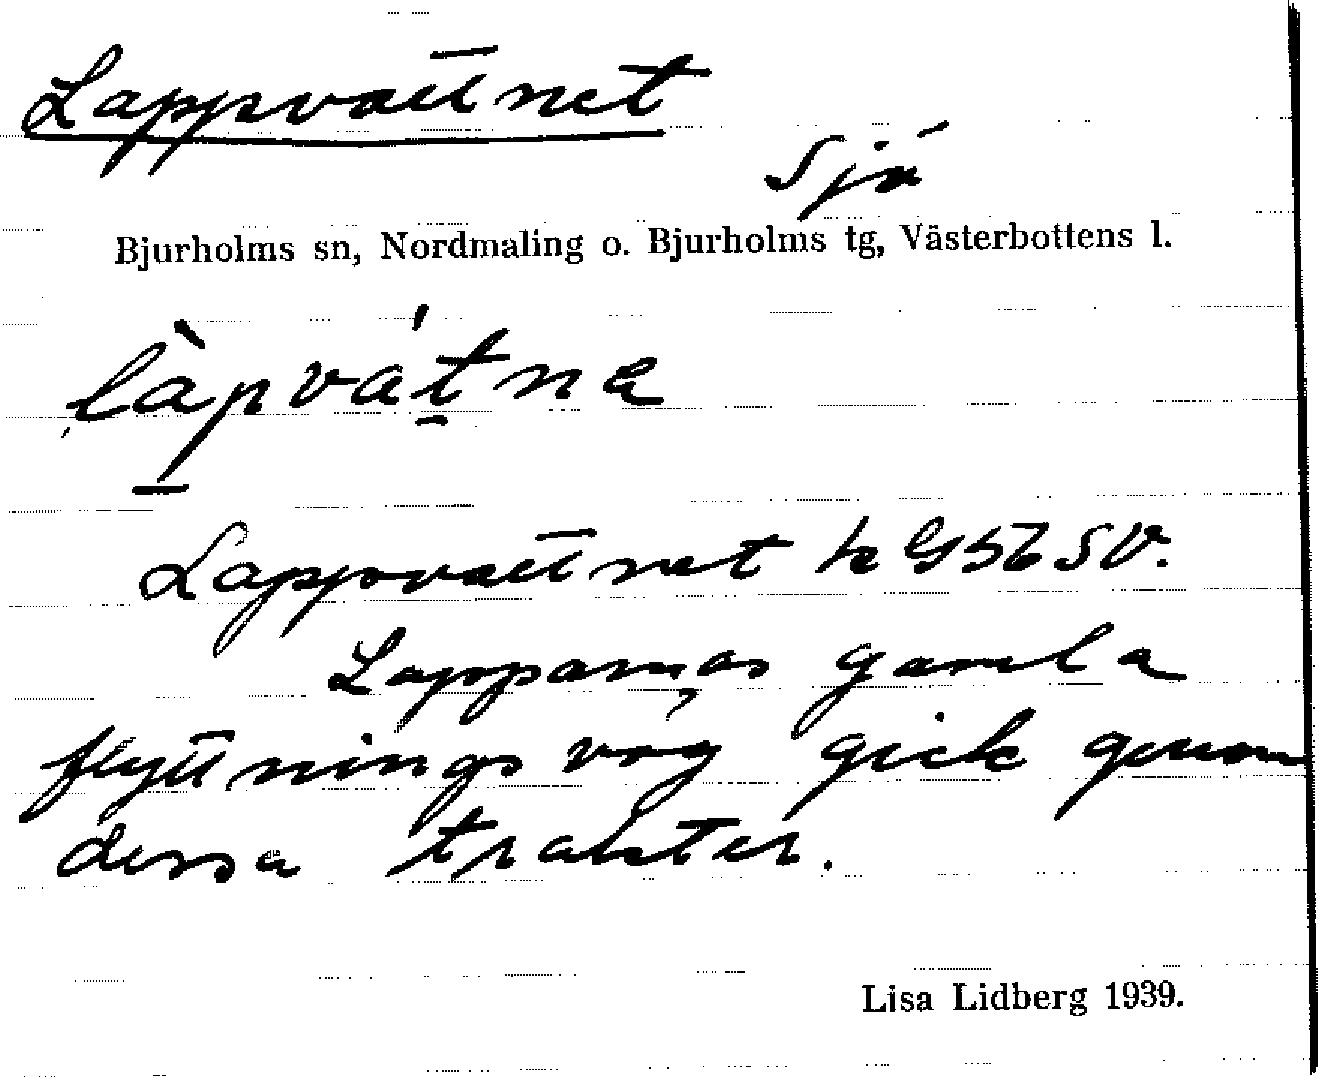 Lappvattnet
Sjö
Bjurholms sn, Nordmaling o. Bjurholms tg, Västerbottens l.
làpvátna
Lappvattnet k G56SV.
Lapparnas gamla
flyttningsväg gick genom
dessa trakter.
Lisa Lidberg 1939.